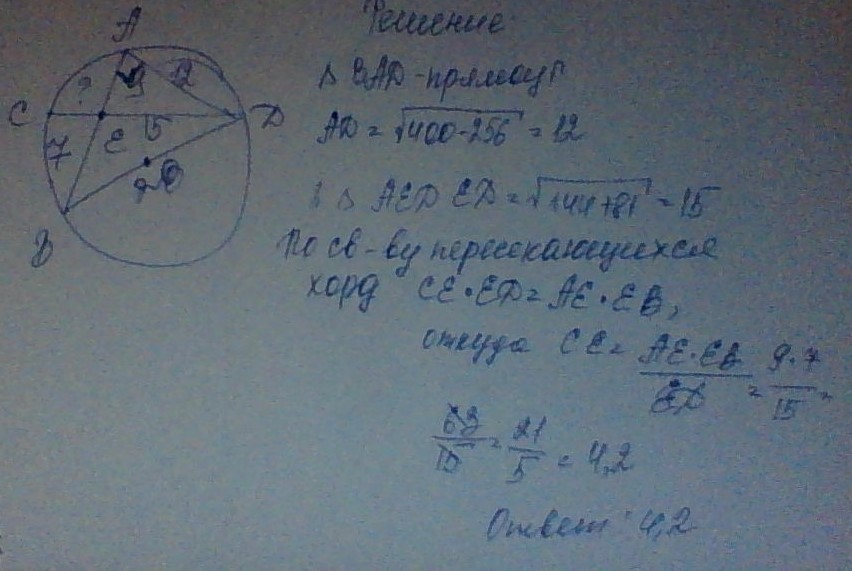 Решение
A
C
D
B
E
?
9
12
7
15
20
Δ BAD - прямоуг
AD = √400-256 = 12
Δ AED ED = √144+81 = 15
По св-ву пересекающихся
хорд CE · ED = AE · EB,
откуда CE = AE·EB / ED = 9·7 / 15 =
63/15 = 21/5 = 4,2
Ответ: 4,2